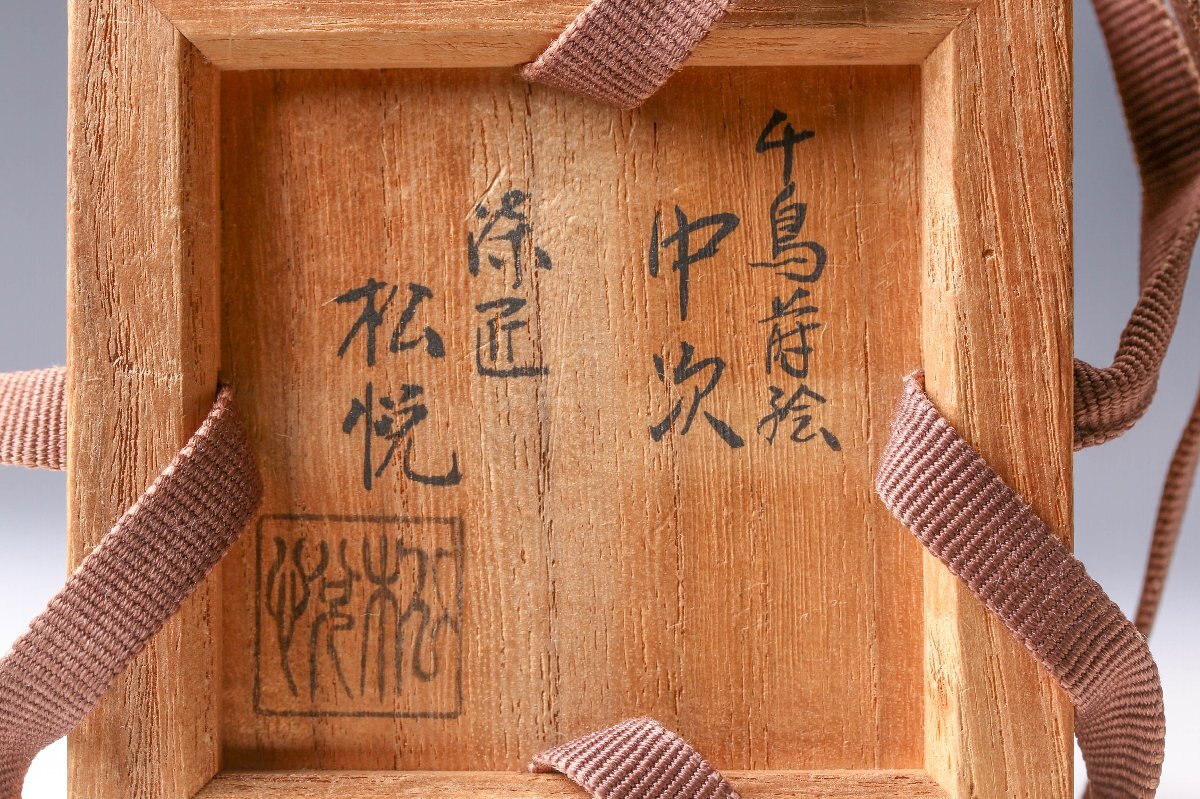 千鳥蒔絵
中次
漆匠
松悦
松悦